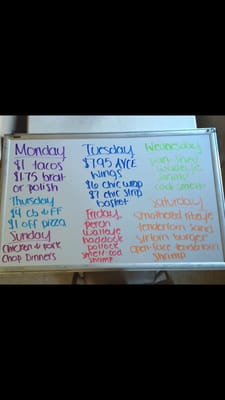 Monday
$1 tacos
$1.75 brat
or polish
Thursday
$4 cb & FF
$1 off pizza
Sunday
chicken & pork
Chop Dinners
Tuesday
$7.95 AYCE
wings
$6 chic wrap
$7 chic strip
basket
Friday
perch
walleye
haddock
pollock
smelt-cod
shrimp
Wednesday
pan-fried
walleye
shrimp
cod-smelt
Saturday
smothered ribeye
tenderloin sand
sirloin burger
open-face tenderloin
shrimp